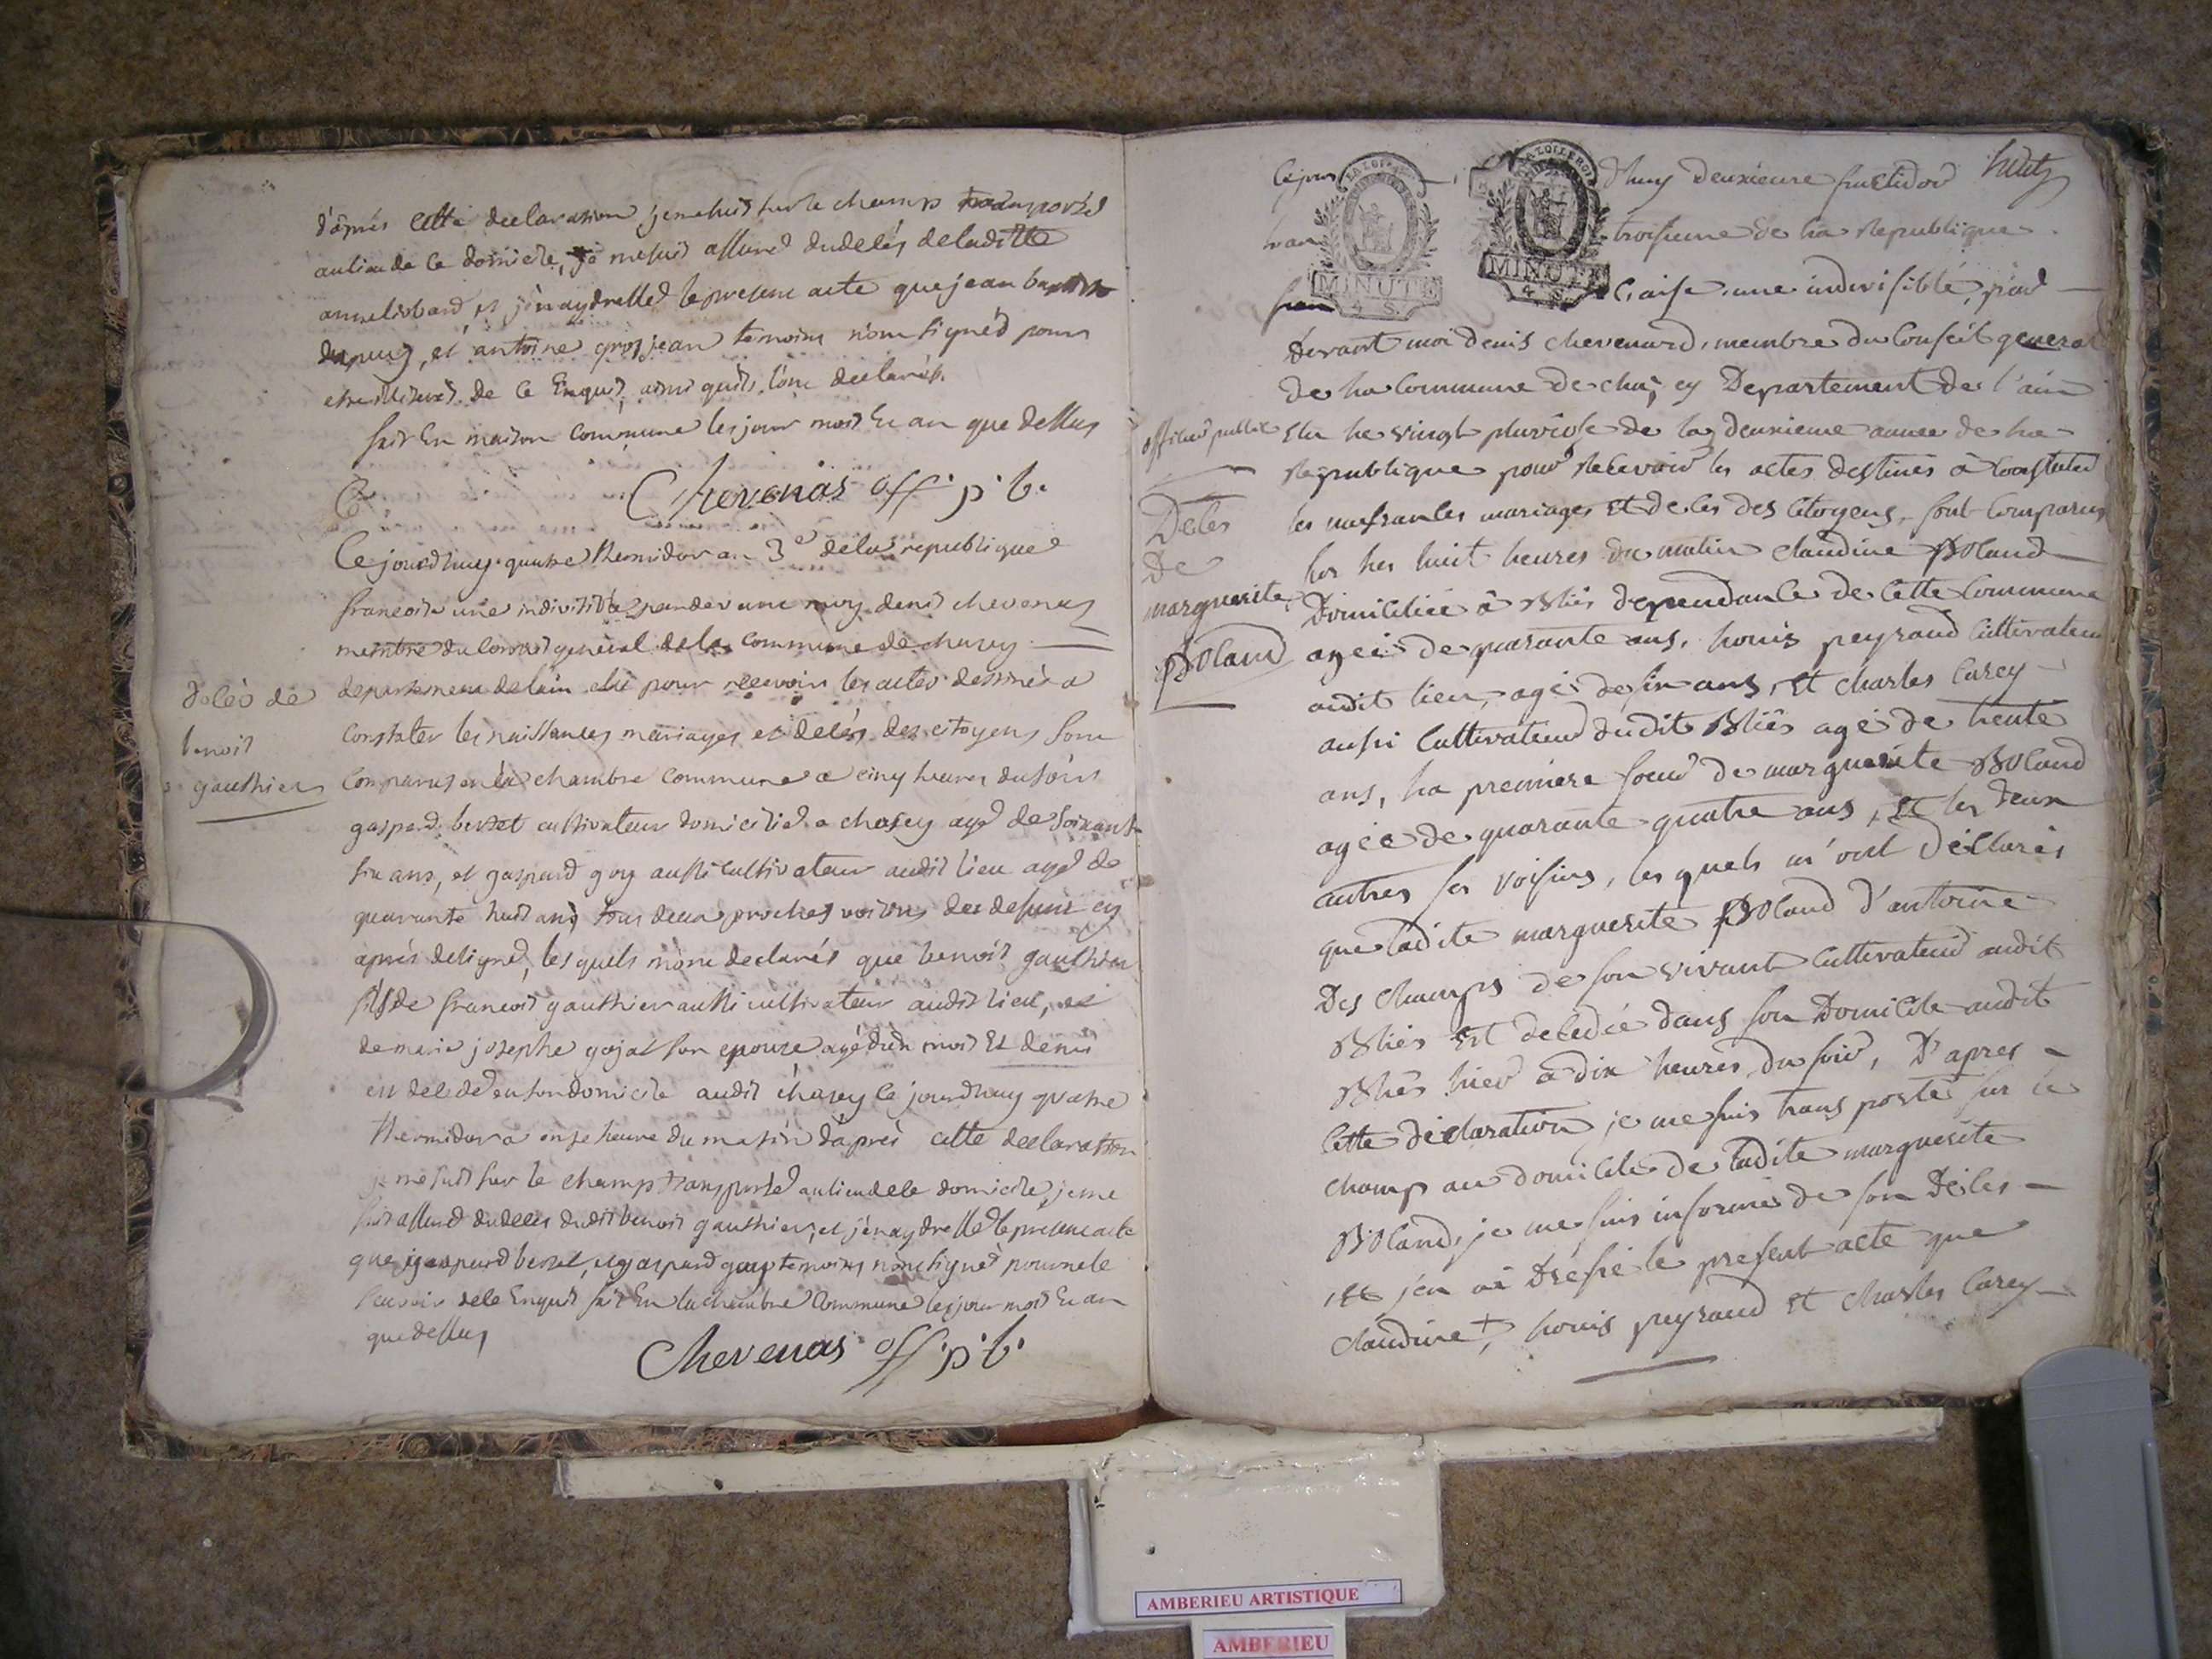 d'après cette declaration je me suis sur le champs transportéd
au lieu de ce domicile, je me suis assuré du delés de laditte
et j'en ay dressed le present acte que jean baptiste
dupuy, et antoine grosjean temoins n'ont signéd pour
de ce Enquis, ainsi quils l'ont declarés.
fait En maison commune les jour mois Et an que dessus
Chevenas off. p. b.
Ce jourdhuy quatre thermidor an 3e de la republique
francoise une indivisible pardevant moy denis chevenas
membre du conseil general de la commune de chazey
departement de lain elu pour recevoir les actes destinés a
constater les naissances mariages et delés des citoyens sont
comparus en la chambre commune a cinq heures du soir
gaspard berset cultivateur domicilied a chasey ayé de soixante
six ans, et gaspard goy aussi cultivateur audit lieu ayé de
quarante huit ans tous deux proches voisins des defunt cy
après designed, lesquels m'ont declarés que benoit gauthier
fils de francois gauthier aussi cultivateur audit lieu, et
de marie josephe gojat son epouse ayé d'un mois Et demis
est delededen son domicile audit chasey ce jourdhuy quatre
thermidor a onze heure du matin d'après cette declaration
je me suis sur le champ transported au lieu de le domicile, je me
suis assured du delés dudit benoit gauthier, et j'en ay dressed le present acte
que gaspard berset, et gaspard goy temoins n'ont signéd pour ne le
scavoir de le Enquis fait En la chambre commune les jour mois Et an
que dessus
Chevenas off. p. b.
delés de
benoit
gauthier
Ce jour dhuy deuxieme fructidor
troisieme de la Republique
MINUTE
4 S.
MINUTE
4 S.
francaise une indivisible, par
devant moi denis chevenard, membre du conseil general
de la commune de chazey Departement de l'ain
officier public elu le vingt pluviose de la deuxieme année de la
Republique pour Recevoir les actes destinés à constater
les naissances mariages et deces des citoyens, sont comparus
sur les huit heures du matin claudine Roland
Domiciliée à Bliès dependance de cette commune
agée de quarante ans, Louis peyraud cultivateur
audit lieu, agé de six ans, et charles Carey
aussi cultivateur dudit Bliès agé de trente
ans, la premiere soeur de marguerite Roland
agée de quarante quatre ans, et les deux
autres ses voisins, lesquels m'ont déclarés
que ladite marguerite Roland d'antoine
Des champs de son vivant cultivateur audit
Bliès est decedée dans son Domicile audit
Bliès hier à dix heures du soir, D'apres
cette declaration je me suis transporté sur le
champ au domicile de ladite marguerite
Roland, je me suis informé de son Déces
et jen ai Dressé le present acte que
claudine, Louis peyraud et charles Carey
Deces
De
marguerite
Roland
AMBERIEU ARTISTIQUE
AMBERIEU